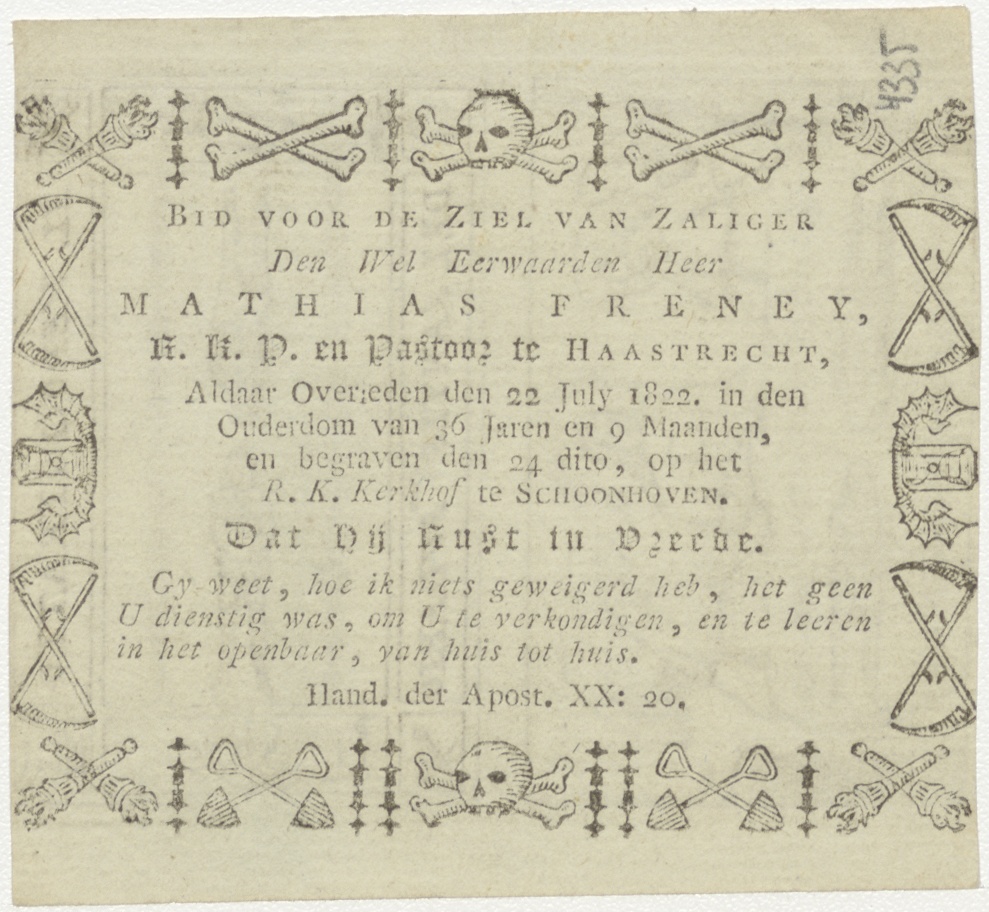 4335
BID VOOR DE ZIEL VAN ZALIGER
Den Wel Eerwaarden Heer
MATHIAS FRENEY,
R. K. P. en Pastoor te HAASTRECHT,
Aldaar Overleden den 22 July 1822. in den
Ouderdom van 36 Jaren en 9 Maanden,
en begraven den 24 dito, op het
R. K. Kerkhof te SCHOONHOVEN.
Dat hij Rust in Vreede.
Gy weet, hoe ik niets geweigerd heb, het geen
U dienstig was, om U te verkondigen, en te leeren
in het openbaar, van huis tot huis.
Hand. der Apost. XX: 20.